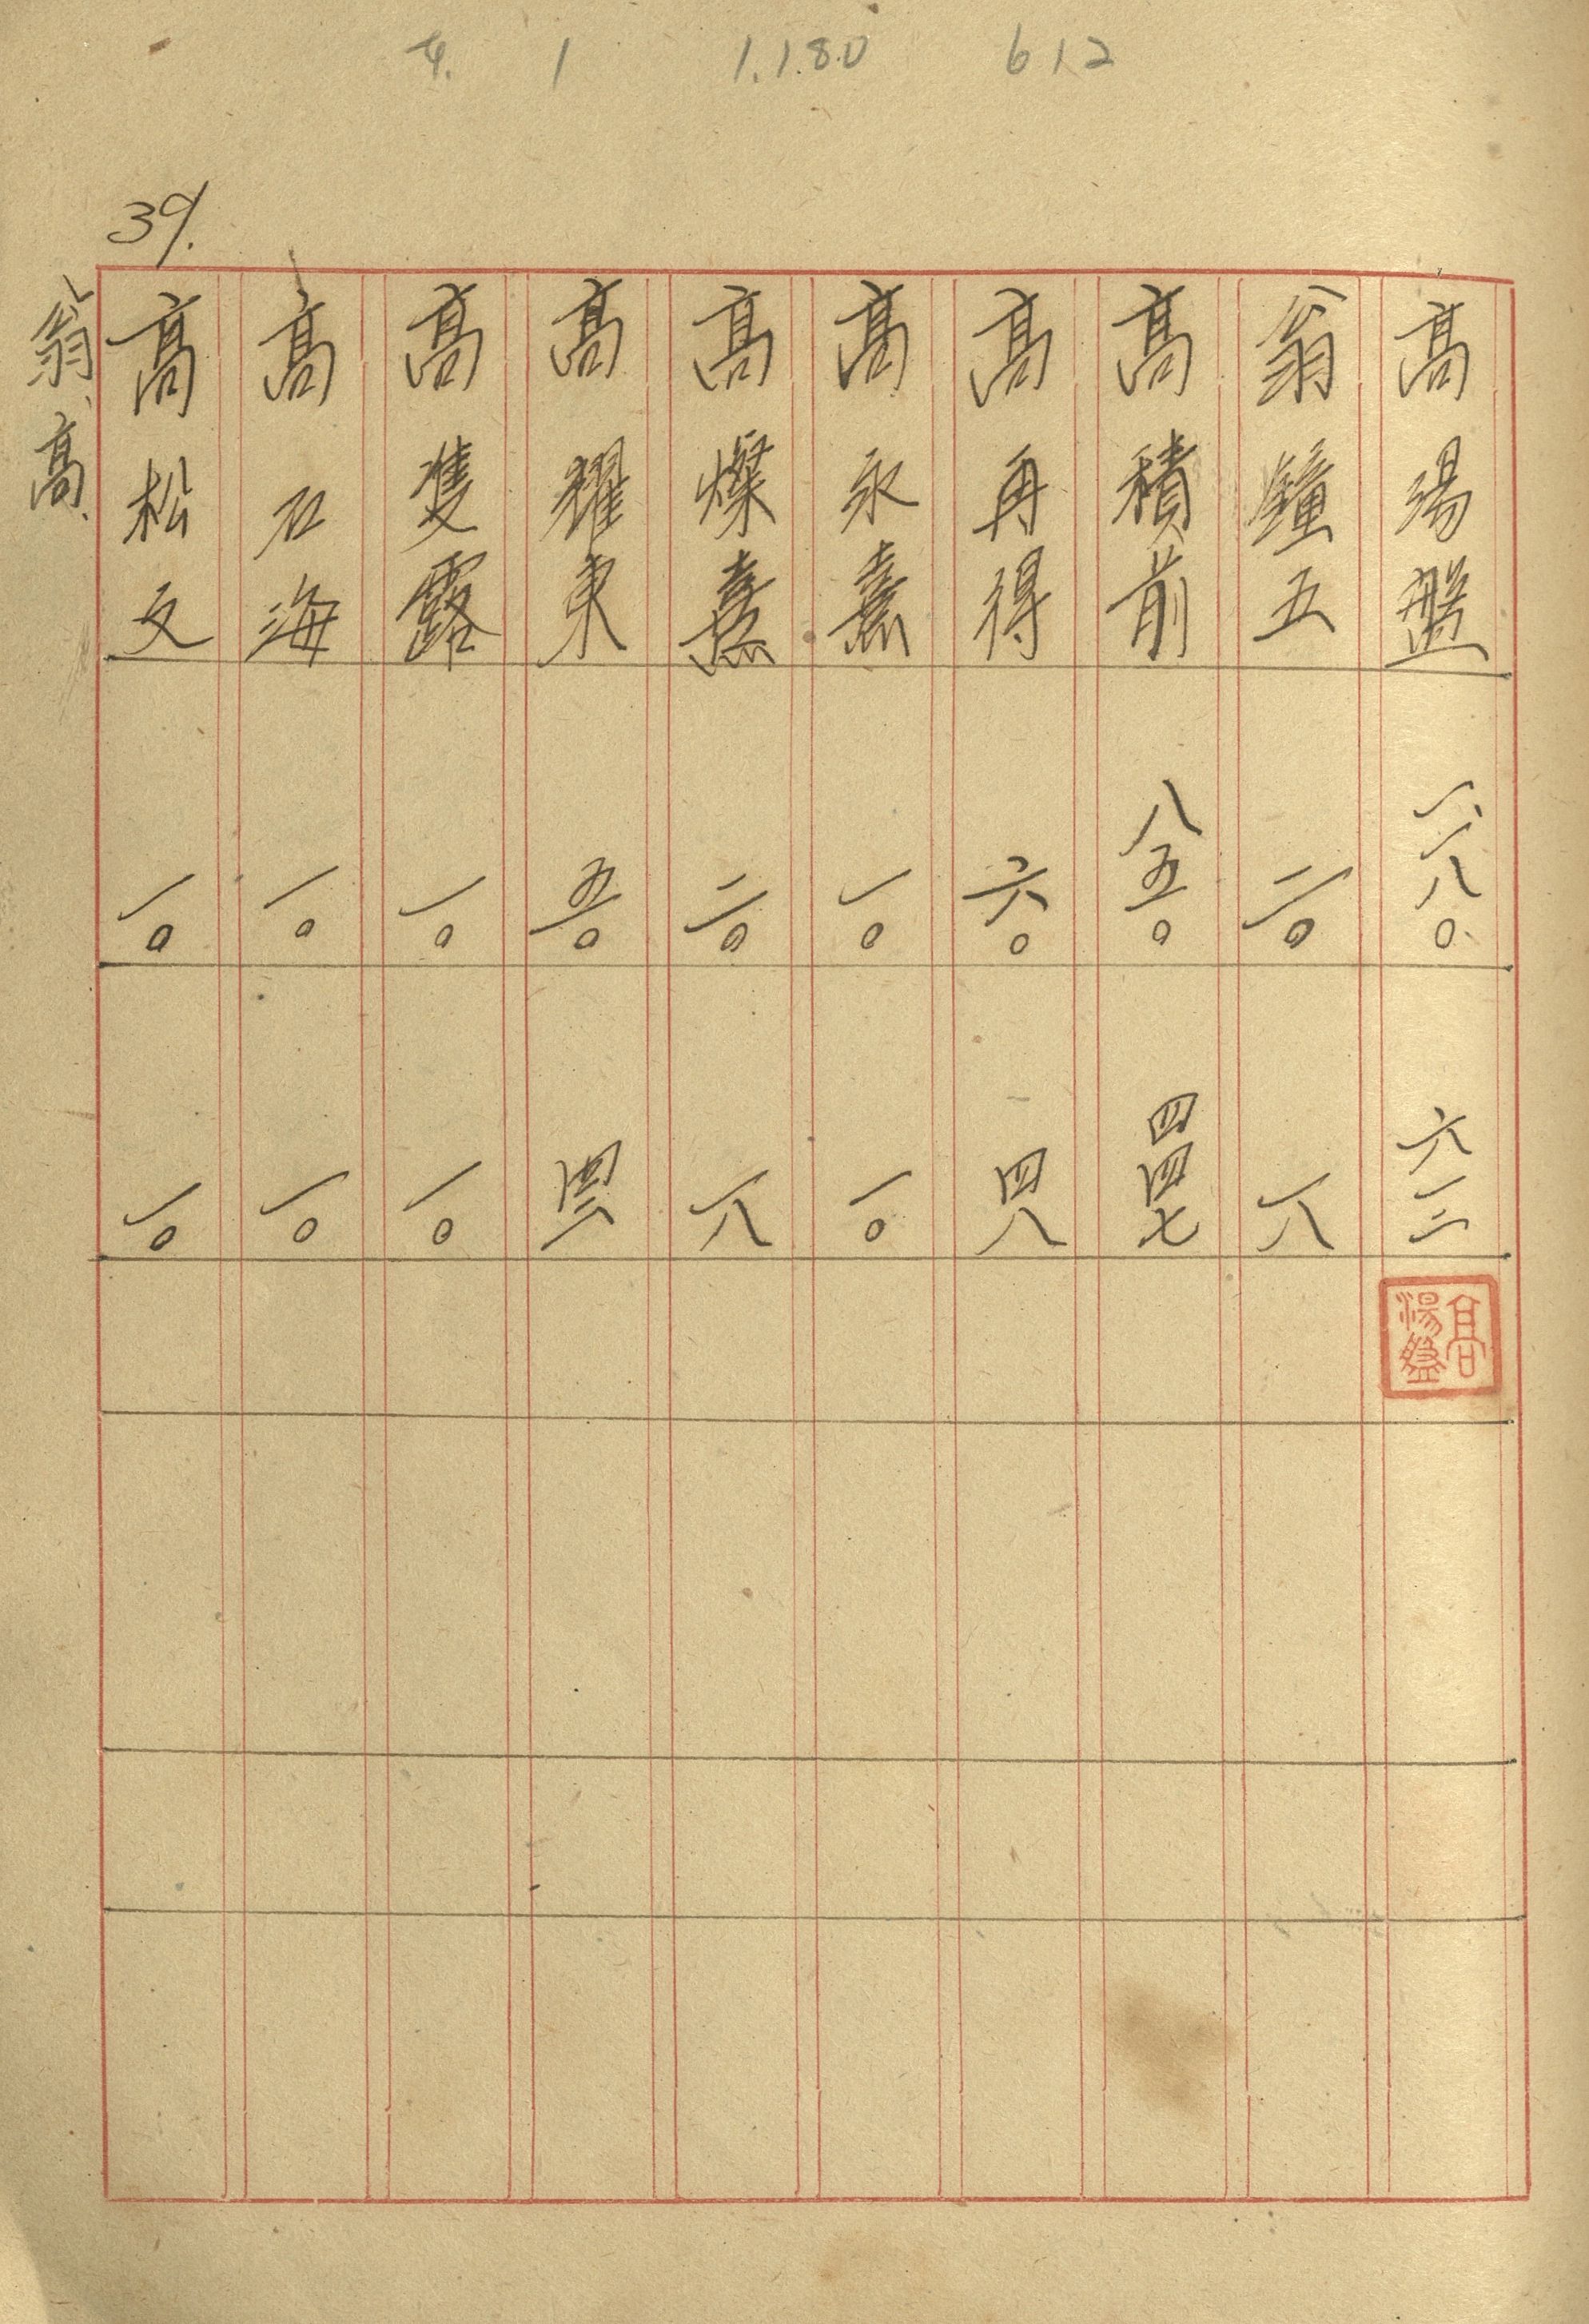 4. 1 1.180 612
39.
高湯盤 一、一八〇 六一二
高湯盤
翁鐘五 二〇 一八
高積前 八五〇 四四七
高再得 六〇 四八
高永熹 一〇 一〇
高燦熹 二〇 一八
高耀東 五〇 四二
高隻露 一〇 一〇
高石海 一〇 一〇
高松文 一〇 一〇
翁、高、